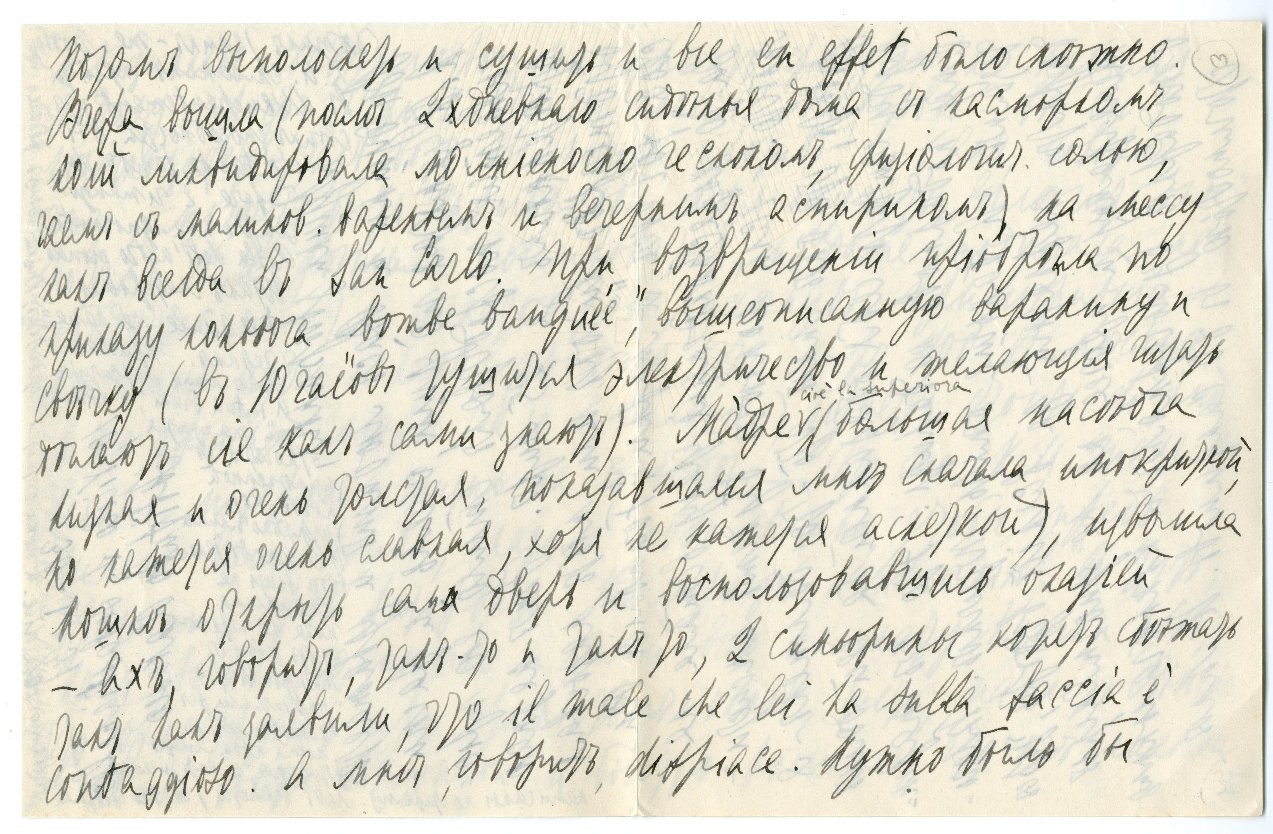 потомъ выполоскать и сушить и все en effet белоснѣжно. 3
Вчера вышла (послѣ 2хдневнаго сидѣнья дома съ насморкомъ,
кой ликвидировала молніеносно чеснокомъ, физіологич. солью,
чаемъ съ малинов. вареньемъ и вечернимъ аспириномъ) на мессу
какъ всегда въ San Carlo. При возвращеніи пріобрѣла по
приказу "bombe banquée", вышеописанную баранину и
свѣчку (въ 10 часовъ тушится электричество и желающія читать
дѣлаютъ сіе какъ сами знаютъ). Màdre (большая насѣдка
cioè la superiora
низкая и очень толстая, показавшаяся мнѣ сначала
но кажется очень славная, хотя не кажется аскеткой), изволила
мнѣ открыть сама дверь и воспользовавшись оказіей
– Ахъ, говоритъ, такъ-то и такъ то, 2 синьорины хотятъ сбѣжать
такъ какъ заявили, что il male che lei ha sulla faccia è
contaggioso. А мнѣ, говоритъ, dispiace. Нужно было бы